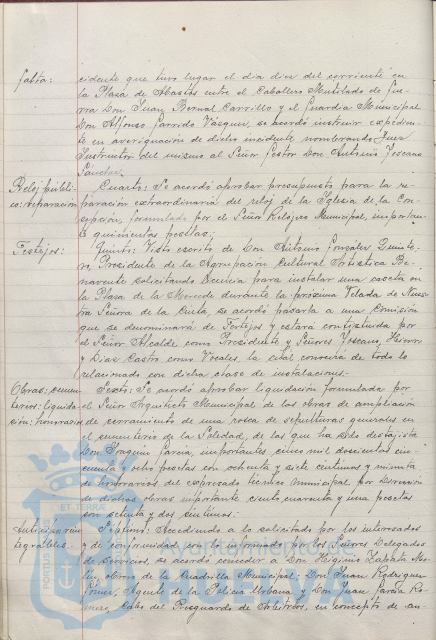 falta:
cidente que tuvo lugar el dia diez del corriente en
la Plaza de Abastos entre el Caballero Mutilado de Gue-
rra Don Juan Bernal Carrillo y el Guardia Municipal
Don Alfonso Garrido Vásquez, se acordó instruir expedien-
te en averiguación de dicho incidente nombrando Juez
Instructor del mismo al Señor Gestor Don Antonio Toscano
Sánchez.
Reloj públi-
co: reparación
Cuarto: Se acordó aprobar presupuesto para la re-
paración extraordinaria del reloj de la Iglesia de la Con-
cepción, formulado por el Señor Relojero Municipal, importan-
te quinientas pesetas;
Festejos:
Quinto: Visto escrito de Don González Quinte-
ro, Presidente de la Agrupación Cultural Artistica Be-
navente solicitando licencia para instalar una caseta en
la Plaza de la Merced durante la próxima Velada de Nues-
tra Señora de la Cinta, se acordó pasarla a una Comisión
que se denominará de Festejos y estará constituida por
el Señor Alcalde como Presidente y Señores Toscano,
y Diaz Castro como Vocales, la cual conocerá de todo lo
relacionado con dicha clase de instalaciones.
Obras: cemen-
terios: liquida-
ción: honorarios
Sexto: Se acordó aprobar liquidación formulada por
el Señor Arquitecto Municipal de las obras de ampliación
de cerramiento de una zona de sepulturas generales en
el cementerio de la Soledad, de las que ha sido destajista
Don Joaquin Garcia, importantes cinco mil doscientas cin-
cuenta y ocho pesetas con ochenta y siete centimos y minuta
de honorarios del expresado técnico municipal por Dirección
de dichas obras importante ciento cuarenta y una pesetas
con setenta y dos centimos.
Anticipos rein-
tegrables.
Septimo: Accediendo a lo solicitado por los interesados
y de conformidad con lo informado por los Señores Delegados
de Servicios, se acordó conceder a Don Higinio Zapata
obrero de la Cuadrilla Municipal, Don Juan Rodriguez
Agente de la Policia Urbana y Don Juan Garcia Ro-
mero, Cabo del Resguardo de Arbitrios, en concepto de an-
PORTUS
ET TERRA
Ayuntamiento de